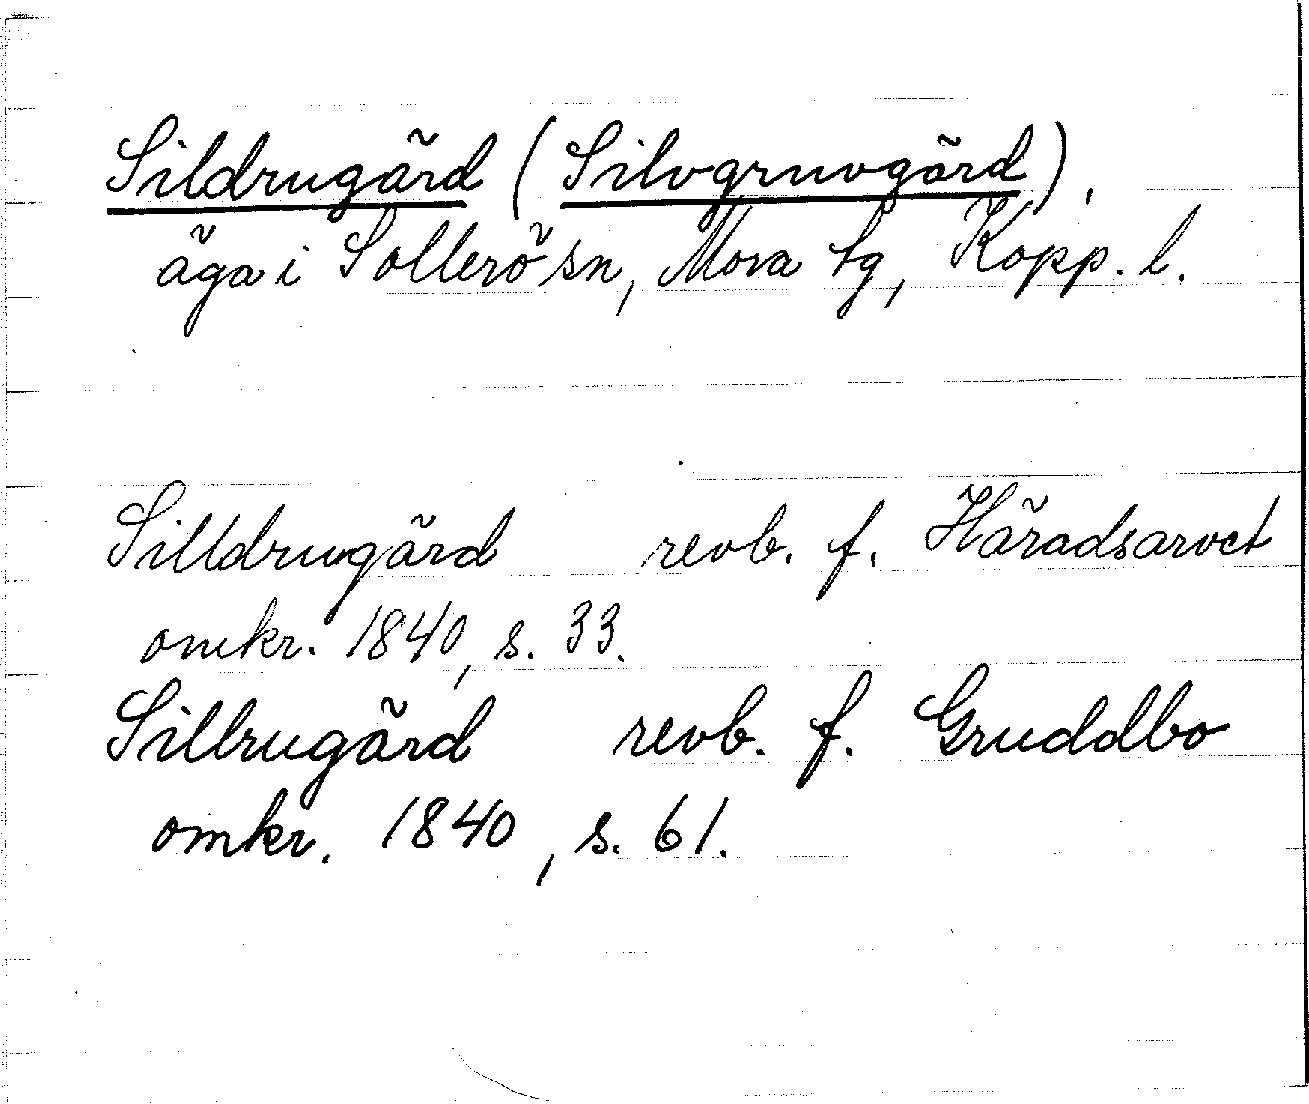 Sildrugärd (Silvgruvgärd).
äga i Sollerö sn, Mora tg, Kopp. l.
Silldrugärd revb. f. Häradsarvet
omkr. 1840, s. 33.
Sillrugärd revb. f. Gruddbo
omkr. 1840, s. 61.